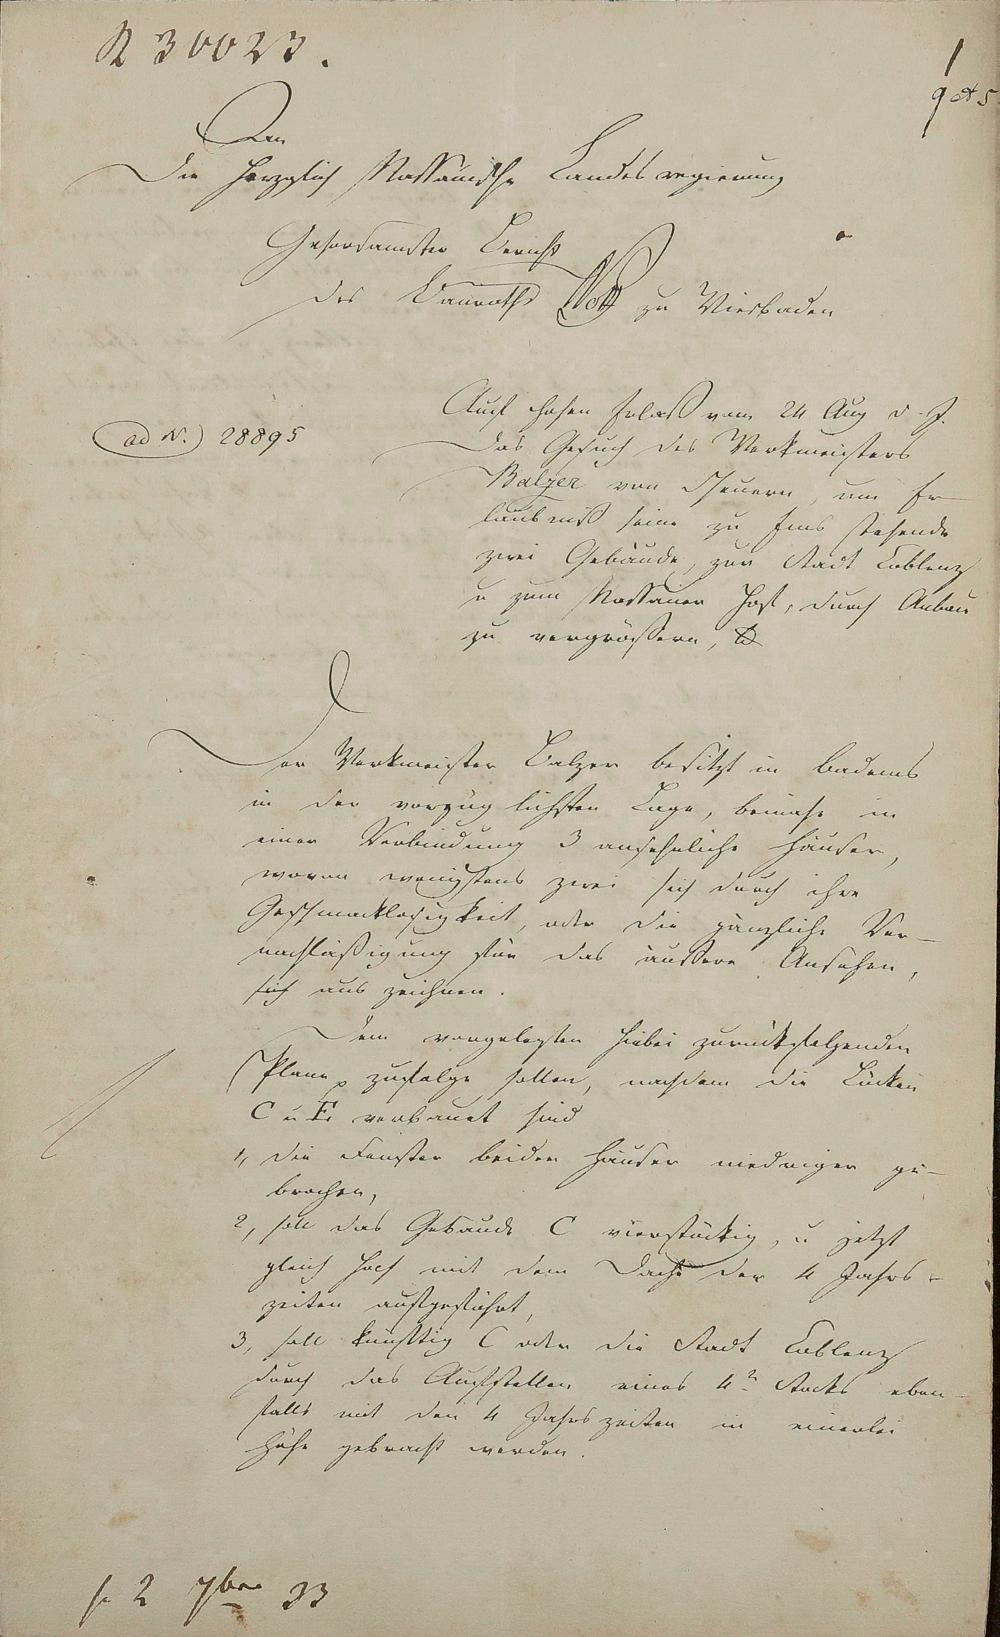 R 30023.
1
An
Die Herzoglich Nassauische Landesregierung
Gehorsamster Bericht
des Bauraths zu Wiesbaden
ad N. 28895
Auf hohen Erlaß vom 24 Aug d. J.
das Gesuch des Werkmeisters
Balzer von um Er-
laubniß seine zu Ems stehende
zwei Gebäude, zur Stadt Coblenz
u zum Nassauer Hof, durch Anbau
zu vergrößern,
Der Werkmeister Balzer besitzt in Badems
in der vorzüglichsten Lage, beinahe in
einer Verbindung 3 ansehnliche Häuser,
wovon wenigstens zwei sich durch ihre
Geschmacklosigkeit, oder die gänzliche Ver-
nachläßigung für das äußere Ansehen,
sich auszeichnen.
Dem vorgelegten hiebei zurückfolgenden
Plane zufolge sollen, nachdem die Lücken
C u E verbauet sind
1, die Fenster beider Häuser niedriger ge-
brochen,
2, soll das Gebäude C vierstöckig, u jetzt
gleich hoch mit dem Dache der 4 Jahrs-
zeiten aufgeführt,
3, soll künftig C oder die Stadt Coblenz
durch das Aufstellen eines 4n Stocks eben-
falls mit den 4 Jahrszeiten in einerlei
Höhe gebracht werden.
2 7ber 33